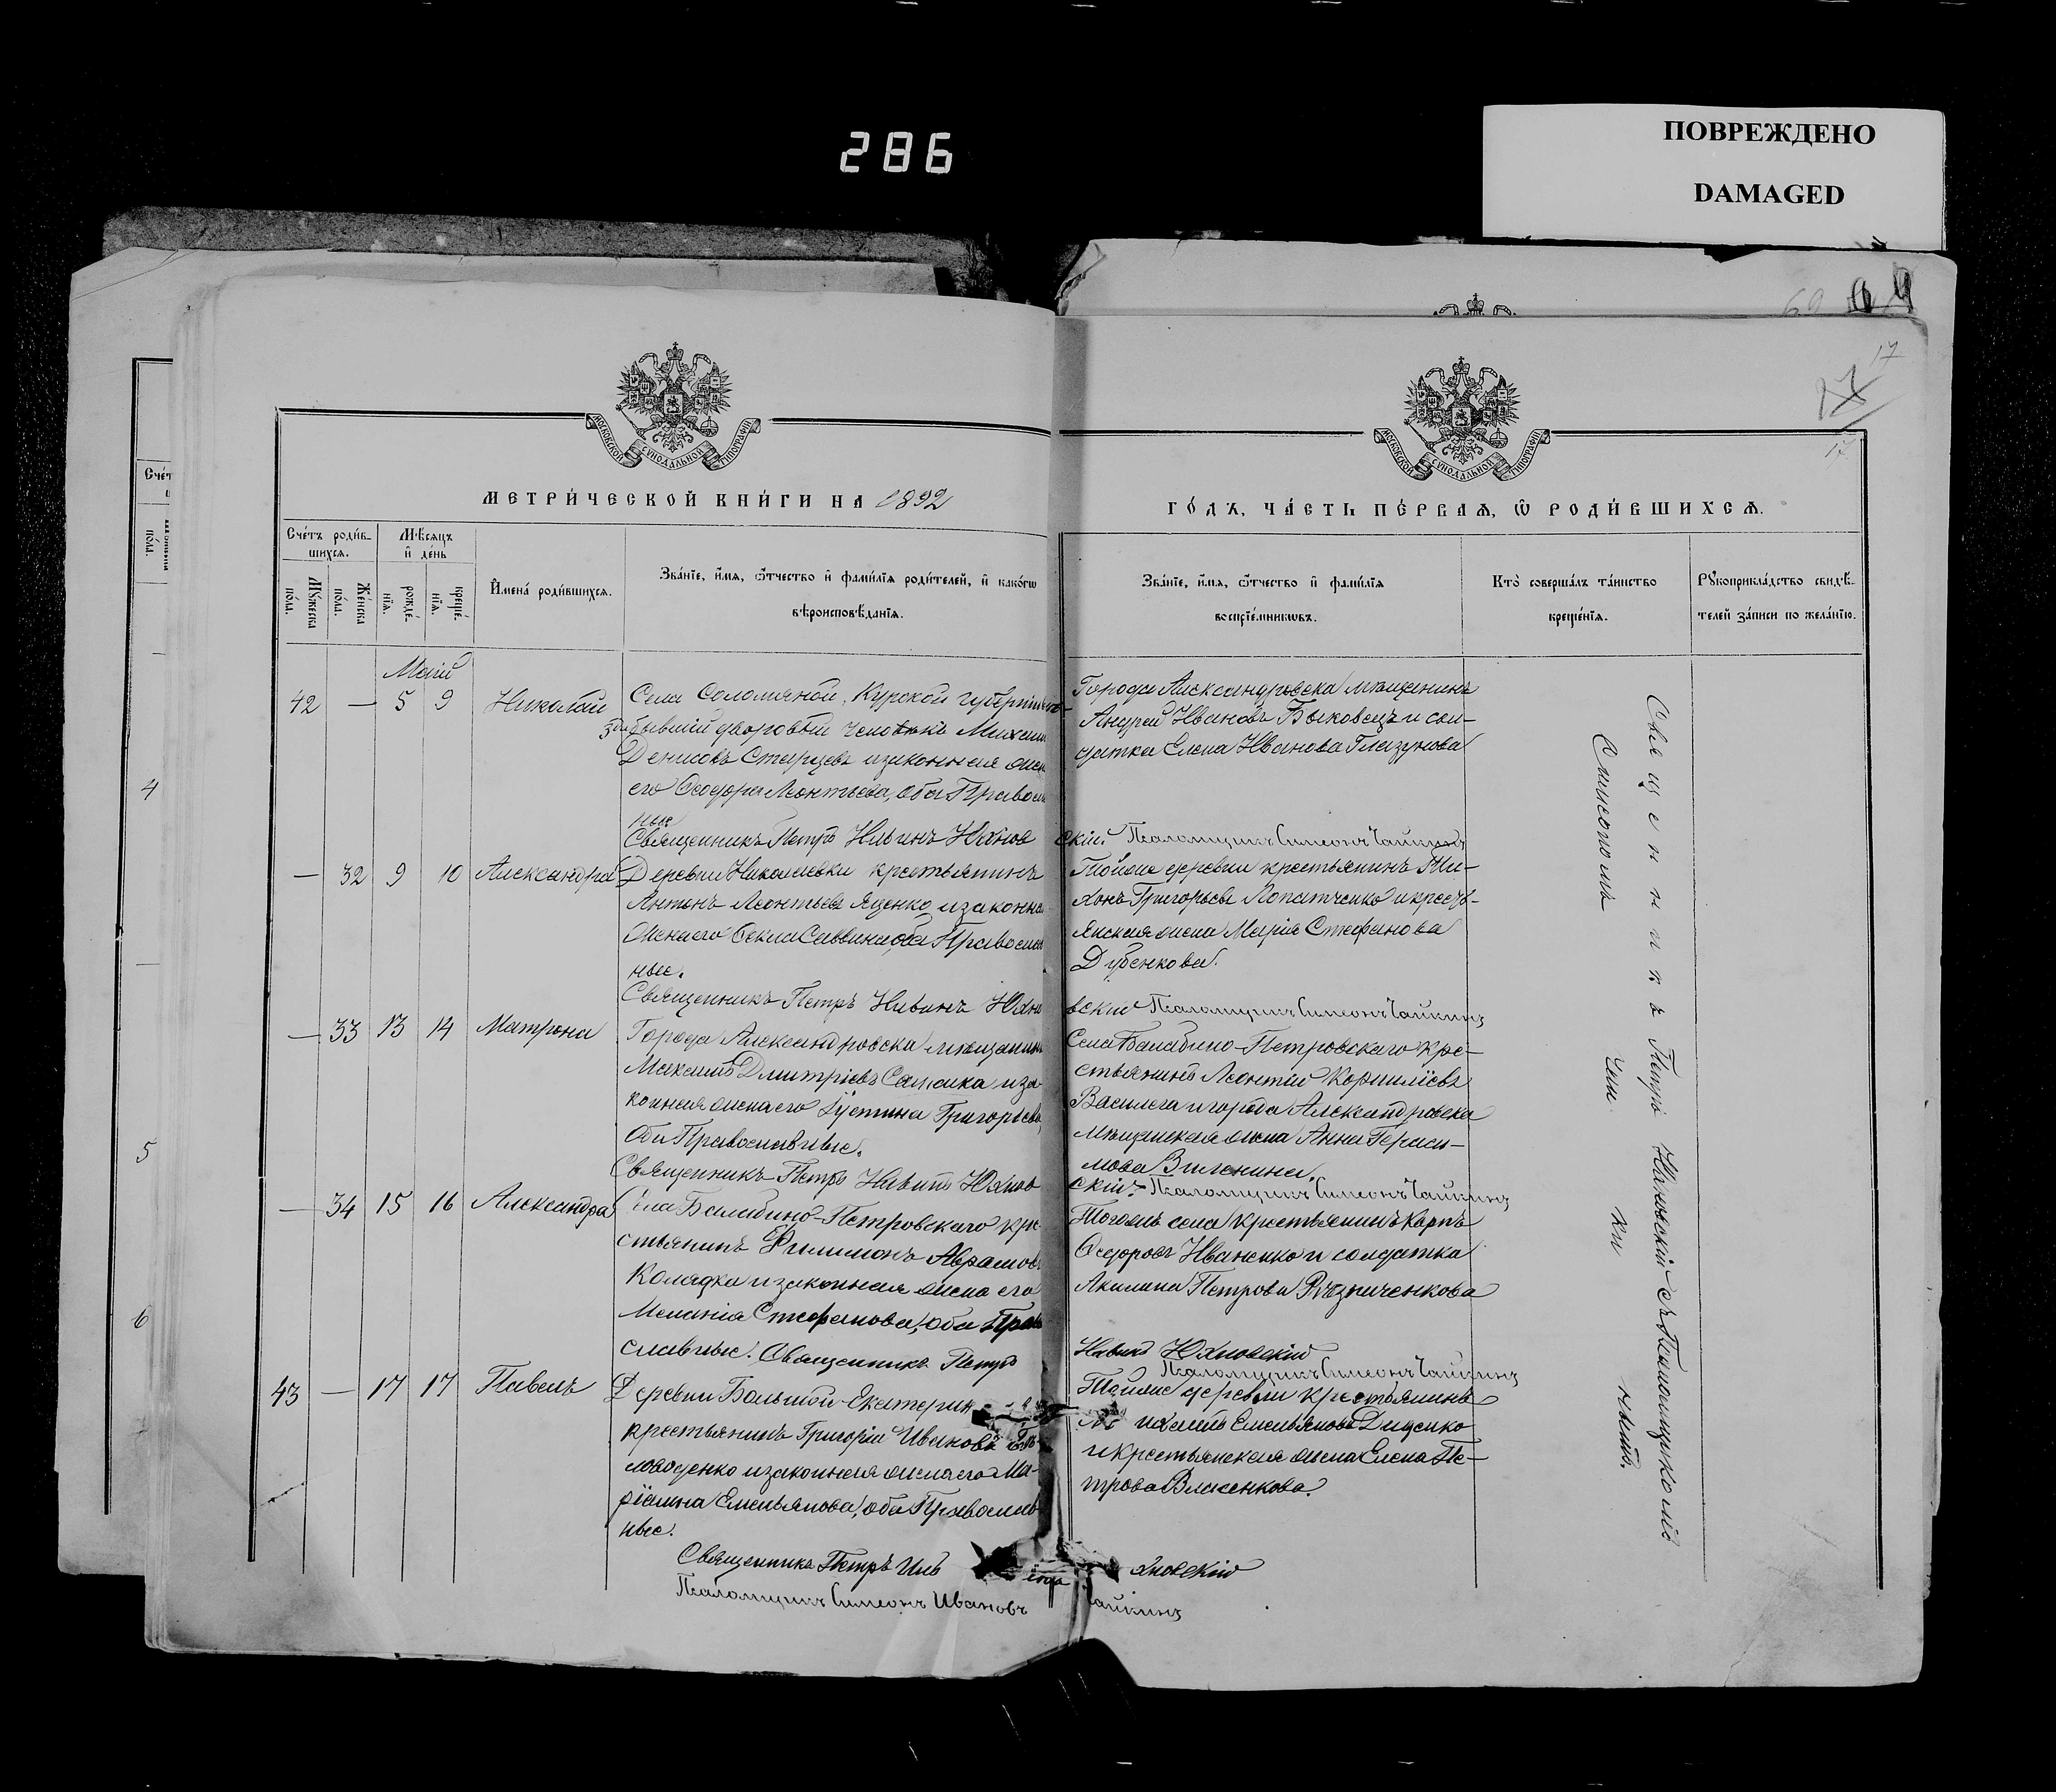 286
ПОВРЕЖДЕНО
DAMAGED
17
17
МОСКОВСКОЙ СѴНОДАЛЬНОЙ ТИПОГРАФІИ
МОСКОВСКОЙ СѴНОДАЛЬНОЙ ТИПОГРАФІИ
МЕТРИ́ЧЕСКОЙ КНИ́ГИ НА 1892
ГО́ДЪ, ЧА́СТЬ ПЕ́РВАѦ, Ѡ҆ РОДИ́ВШИХСѦ.
Сче́тъ роди́в-
шихсѧ.
Мѣ́сѧцъ
и҆ де́нь
Мꙋ́жеска
по́ла.
Же́нска
по́ла.
рожде́-
нїѧ.
креще́-
нїѧ.
И҆мена̀ роди́вшихсѧ.
Зва́нїе, и҆́мѧ, ѻ҆́тчество и҆ фами́лїѧ роди́телей, и҆ како́гѡ
вѣроисповѣ́данїѧ.
Зва́нїе, и҆́мѧ, ѻ҆́тчество и҆ фами́лїѧ
воспрїе́мникѡвъ.
Кто̀ соверша́лъ та́инство
креще́нїѧ.
Рꙋкоприкла́дство свидѣ́-
телей за́писи по жела́нїю.
Май
42 — 5 9 Николай
Села Соломяной, Курской губерніи
бывшій дворовый человѣкъ Михаил
Денисовъ Старцевъ и законная жен
его Ѳеодора Леонтьева, оба Правосл
ные
Города Александровска мѣщанинъ
Андрей Ивановъ Быковецъ и сол-
датка Елена Иванова Глазунова
Священникъ Петръ Ильинъ Юхнов
скій. Псаломщикъ Симеонъ Чайкинъ
— 32 9 10 Александра
Деревни Николаевки крестьянинъ
Антонъ Леонтьевъ Яценко и законна
жена его Ѳекла Саввина, оба Правосла
ные.
Тойже деревни крестьянинъ Ти-
хонъ Григорьевъ Лопатченко и кресть-
янская жена Марія Стефанова
Дубенкова.
Священникъ Петръ Ильинъ Юхно
вскій Псаломщикъ Симеонъ Чайкинъ
— 33 13 14 Матрона
Города Александровска мѣщанинъ
Максимъ Дмитріевъ Самака и за-
конная жена его Іустина Григорьева,
Оба Православные.
Села Балабино-Петровскаго кре-
стьянинъ Леонтій Корниліевъ
Василега и города Александровска
мѣщанская жена Анна Гераси-
мова Виленина.
Священникъ Петръ Ильинъ Юхнов
скій. Псаломщикъ Симеонъ Чайкинъ
— 34 15 16 Александра
Села Балабино-Петровскаго кре
стьянинъ Филимонъ Аврамовъ
Колядка и законная жена его
Меланія Стефанова, оба Право
славные. Священникъ Петръ
Тогожъ села крестьянинъ Карпъ
Ѳедоровъ Иваненко и солдатка
Акилина Петрова Рѣзниченкова
Ильинъ Юхновскій
Псаломщикъ Симеонъ Чайкинъ
43 — 17 17 Павелъ
Деревни Большой-Екатерин
крестьянинъ Григорій Ивановъ
и законная жена его Ма-
ріанна Емельянова, оба Православ
ные.
Тойже деревни крестьянинъ
Емельяновъ Диденко
и крестьянская жена Елена Пе-
трова Власенкова.
Священникъ Петръ Иль
хновскій
Псаломщикъ Симеонъ Ивановъ Чайкинъ
Священникъ Петръ Юхновскій съ Псаломщикомъ
Симеономъ Чайкинымъ.
Сче́т
по́ла.
4
5
6